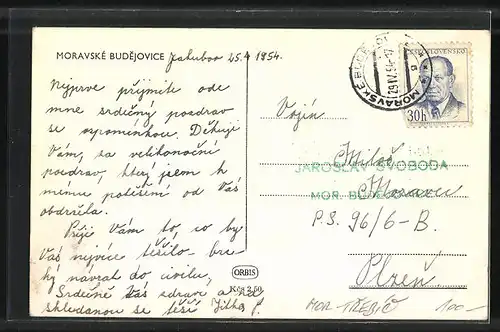 MORAVSKÉ BUDĚJOVICE Jakubov 25.4 1954.
Nejprve přijměte ode
mne srdečný pozdrav
se vzpomínkou. Děkuji
Vám, za velikonoční
pozdrav, který jsem k
mému potěšení od Vás
obdržela.
Přeji Vám to, co by
Vás nejvíce těšilo – brz-
ký návrat do civilu.
Srdečně Vás zdraví a na
shledanou se těší Jitka P.
ORBIS
Kčs 3,50
ČESKOSLOVENSKO
30h
MORAVSKÉ BUDĚJOVICE
29.IV.54-17
Vojín
Miloš
JAROSLAV SVOBODA
MOR. BUDĚJOVICE
Moravec
P.S. 96/6-B.
Plzeň
MOR-TŘEBÍČ 100-